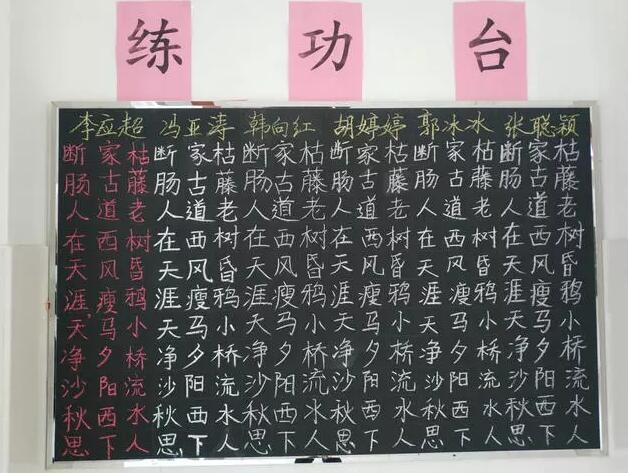 练功台
李应超 冯亚涛 韩向红 胡婷婷 郭冰冰 张聪颖
枯藤老树昏鸦小桥流水人
家古道西风瘦马夕阳西下
断肠人在天涯天净沙秋思
枯藤老树昏鸦小桥流水人
家古道西风瘦马夕阳西下
断肠人在天涯天净沙秋思
枯藤老树昏鸦小桥流水人
家古道西风瘦马夕阳西下
断肠人在天涯天净沙秋思
枯藤老树昏鸦小桥流水人
家古道西风瘦马夕阳西下
断肠人在天涯天净沙秋思
枯藤老树昏鸦小桥流水人
家古道西风瘦马夕阳西下
断肠人在天涯天净沙秋思
枯藤老树昏鸦小桥流水人
家古道西风瘦马夕阳西下
断肠人在天涯天净沙秋思